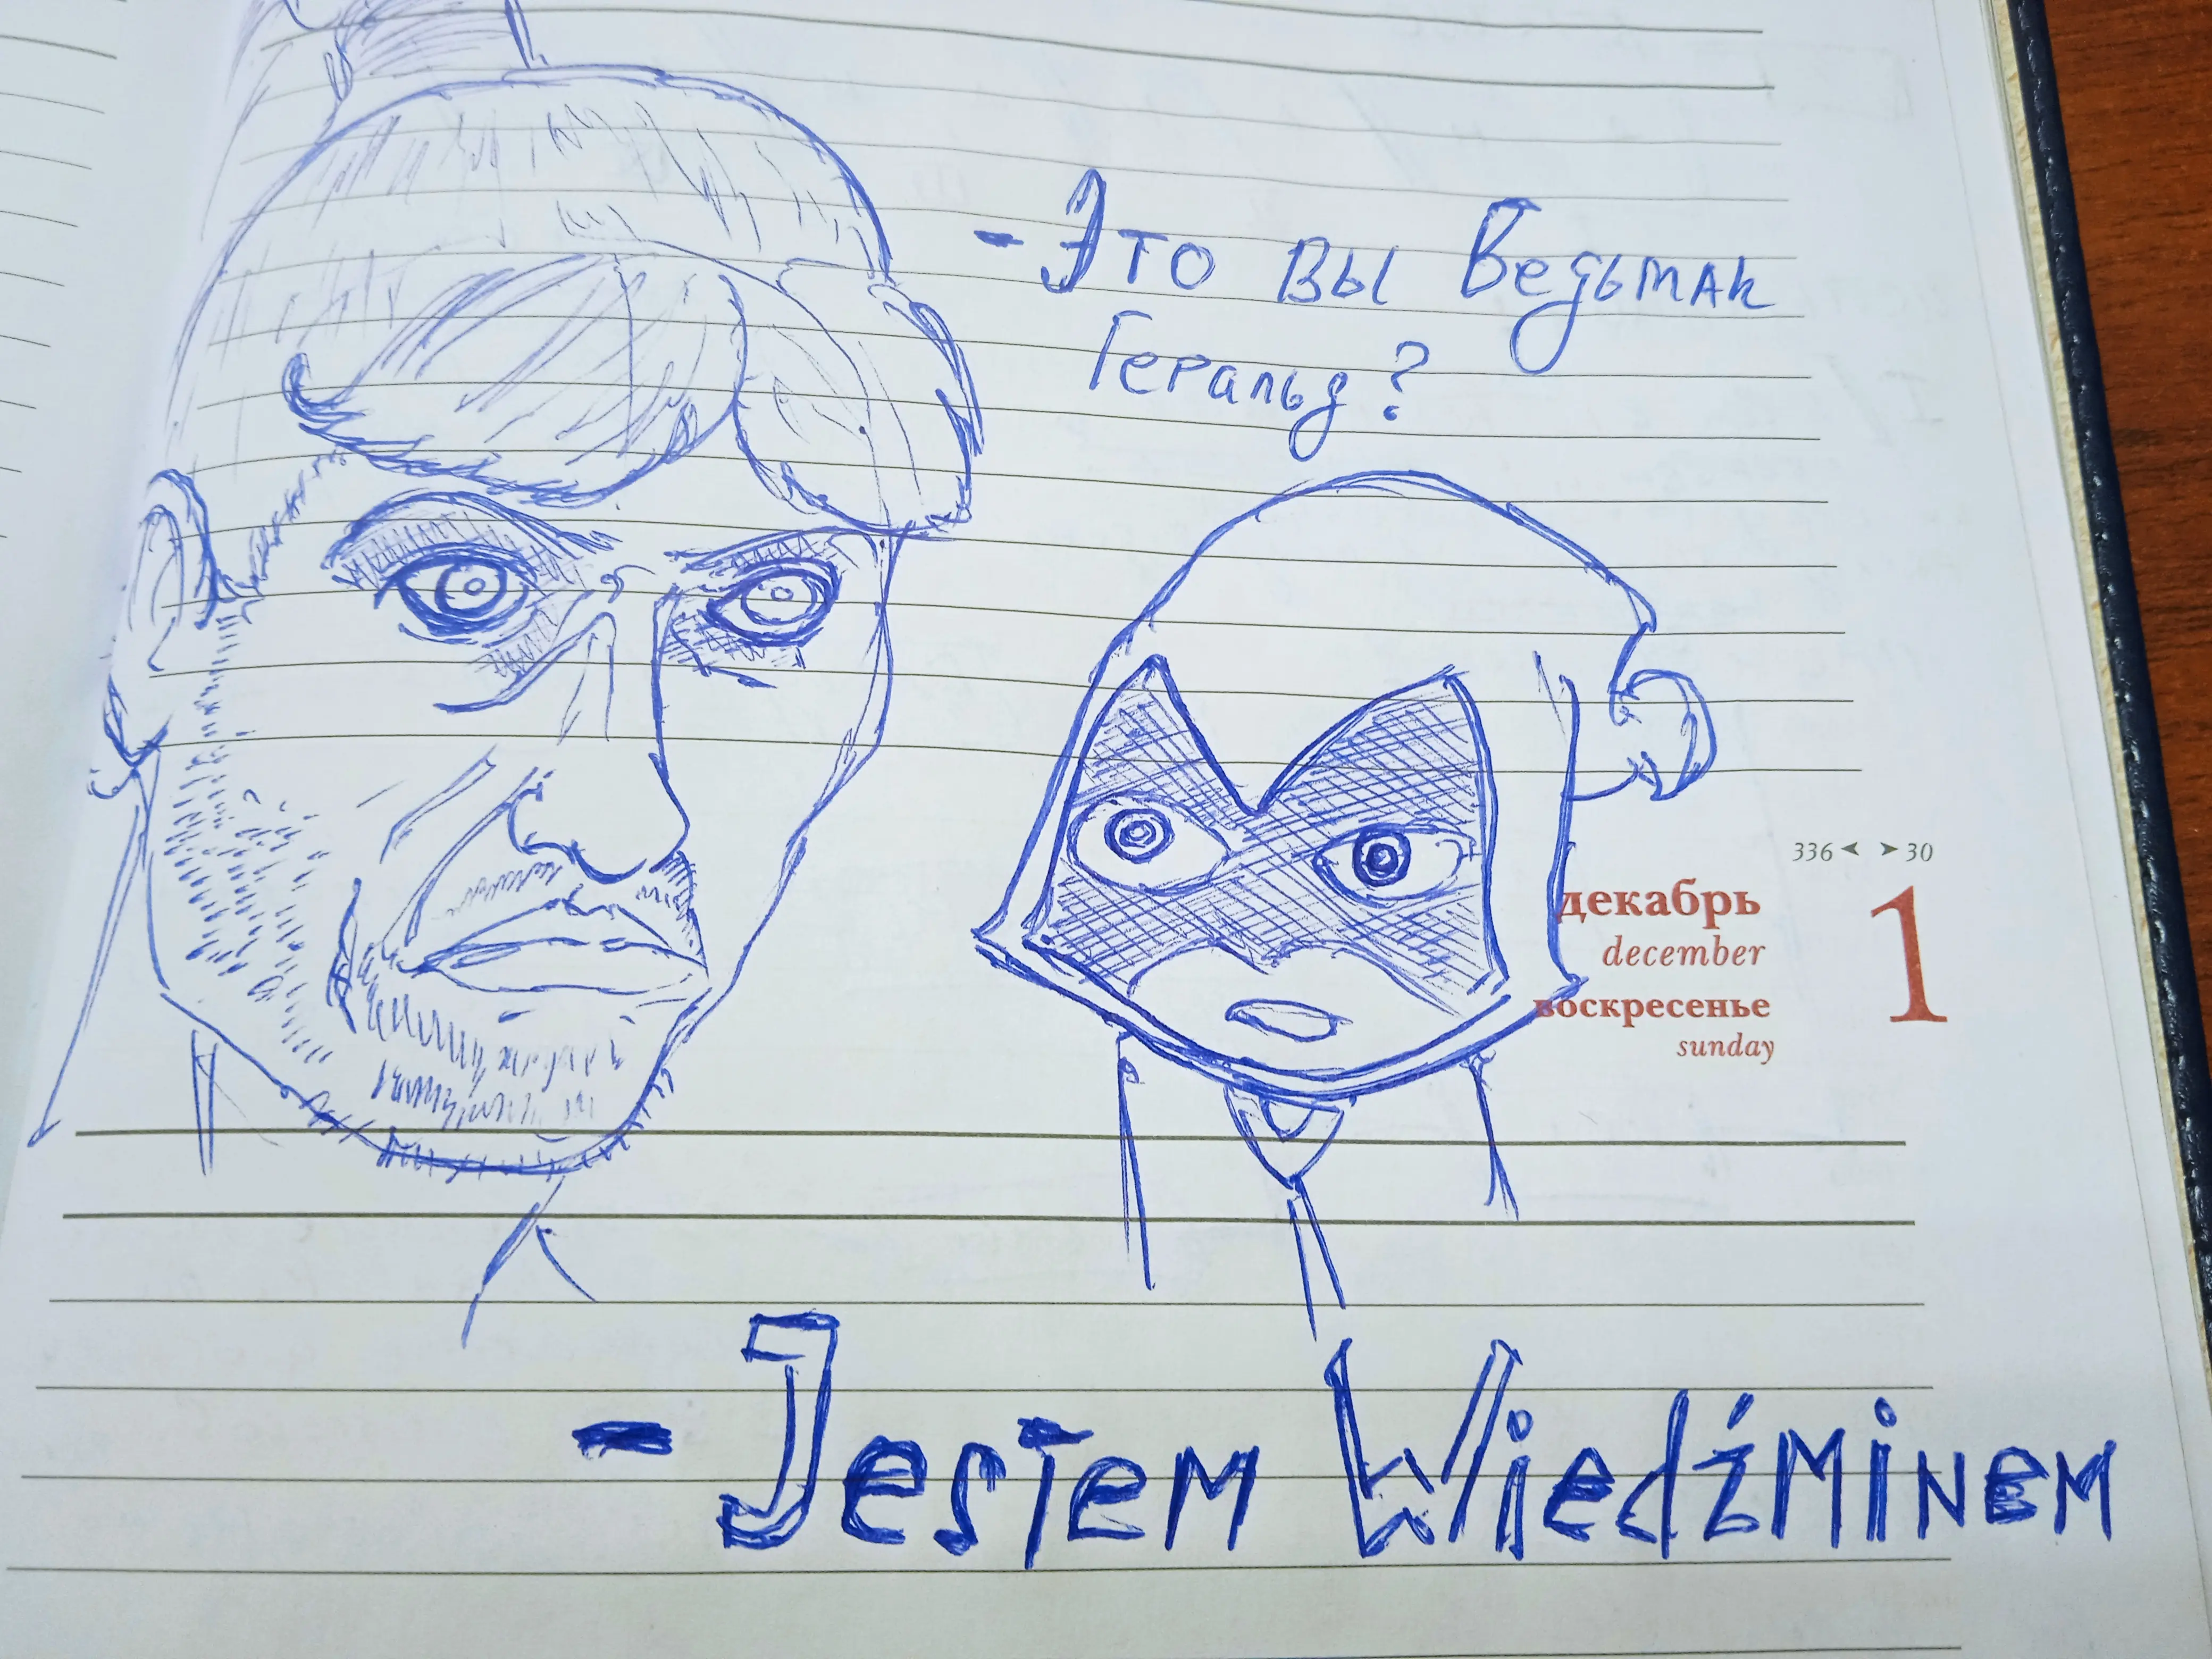 - Это вы Ведьмак
Геральд?
336 ◄ ► 30
декабрь
december
воскресенье
sunday
1
- Jestem Wiedźminem